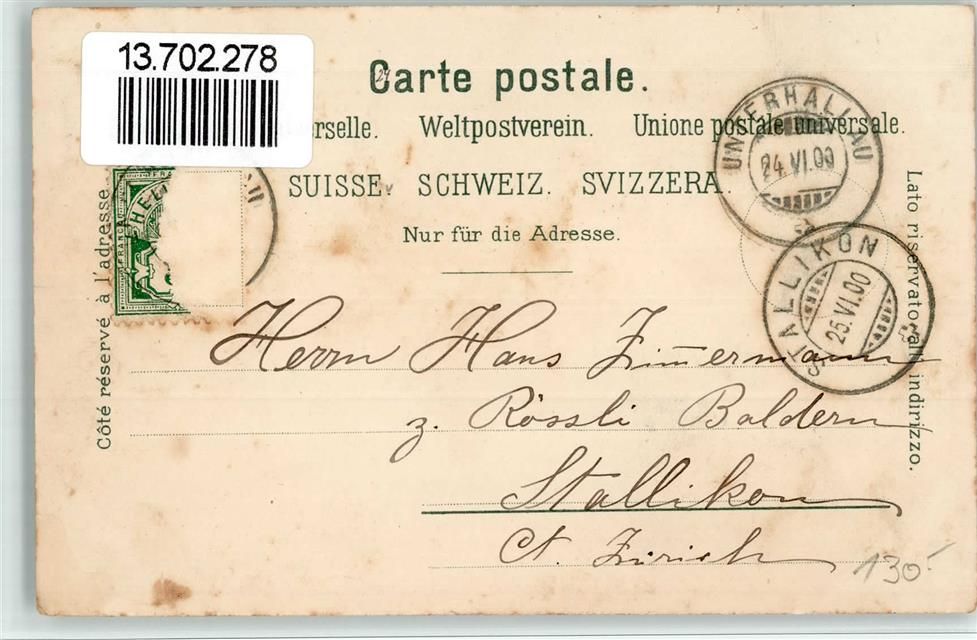 13.702.278
Carte postale.
Weltpostverein. Unione postale universale.
SUISSE. SCHWEIZ. SVIZZERA.
Nur für die Adresse.
Côté réservé à l'adresse.
Lato riservato all' indirizzo.
UNTERHALLAU
24.VI.00
STALLIKON
25.VI.00
FRANCO
HELV
Herrn Hans Zimmermann
z. Rössli Baldern
Stallikon
Ct. Zürich
130.-